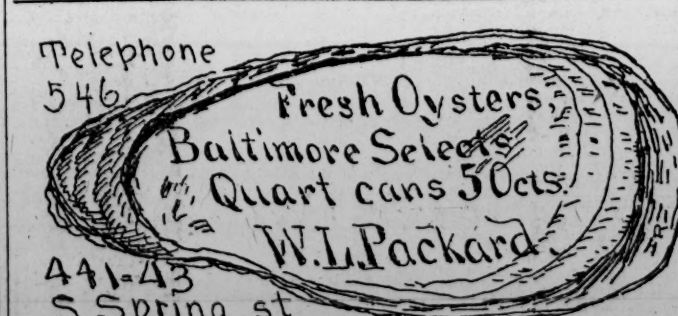 Telephone
546
Fresh Oysters,
Baltimore Selects
Quart cans 50cts.
W.L.Packard.
441=43
S Spring st